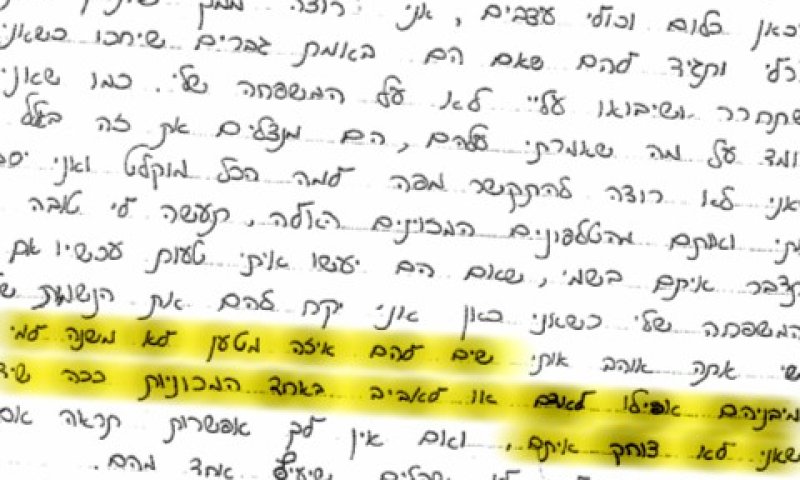 כאן כלום וכולי עצבים, אני רוצה
ותגיד להם שאם הם באמת גברים שיחכו כשאני
שתחרר ושיבואו עליי לא על המשפחה שלי. כמו שאני
עומד על מה שאמרתי עליהם, הם מנצלים את זה בגלל
שאני לא רוצה להתקשר מפה למה הכל מוקלט ואני
ואותם מהטלפונים המזוינים האלה, תעשה לי טובה
תדבר איתם בשמי, שאם הם יעשו איתי טעות עכשיו עם
המשפחה שלי כשאני כאן אני יקח להם את הנשמות
אתה אוהב אותי שים להם איזה מטען לא משנה למי
מביניהם אפילו לאדם או לאביב באחד המכוניות ככה
שאני לא צוחק איתם, ואם אין לך אפשרות תראה אם
אחד מהם.